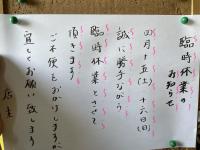 臨時休業の
お知らせ
四月十五(土)十六日(日)
誠に勝手ながら
臨時休業とさせて
頂きます
ご不便をおかけしますが
宜しくお願い致します
店主